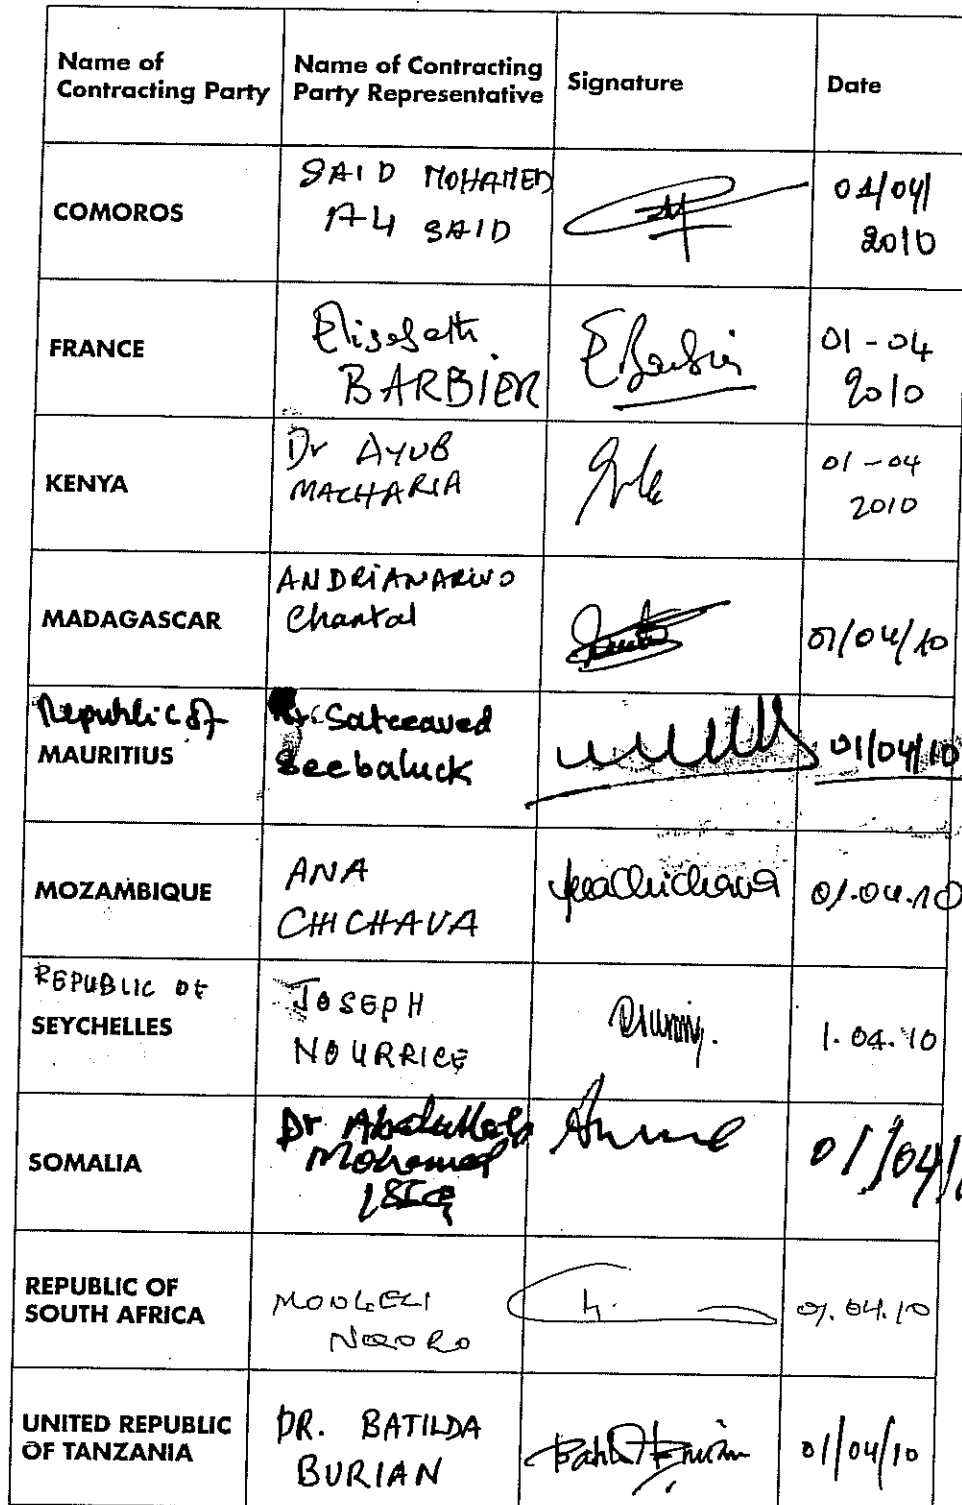 Name of Contracting Party
Name of Contracting Party Representative
Signature
Date
COMOROS
SAID MOHAMED
ALI SAID
01/04/
2010
FRANCE
Elisabeth
BARBIER
EBarbier
01-04
2010
KENYA
Dr AYUB
MACHARIA
01-04
2010
MADAGASCAR
ANDRIANARIVO
Chantal
01/04/10
Republic of
MAURITIUS
Satceaved
Seebaluck
01/04/10
MOZAMBIQUE
ANA
CHICHAVA
AnaChichava
01.04.10
REPUBLIC OF
SEYCHELLES
JOSEPH
NOURRICE
1.04.10
SOMALIA
Dr Abdullahi
Mohamed
01/04/
REPUBLIC OF
SOUTH AFRICA
01.04.10
UNITED REPUBLIC
OF TANZANIA
DR. BATILDA
BURIAN
01/04/10